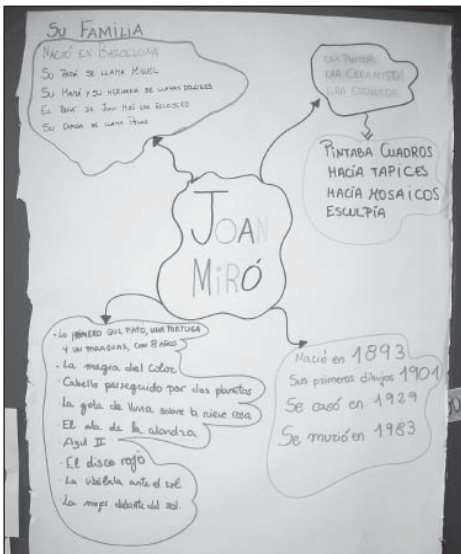 SU FAMILIA
NACIÓ EN BARCELONA
SU PAPÁ SE LLAMA MIGUEL
SU MAMÁ Y SU HERMANA SE LLAMAN DOLORES
EL PAPÁ DE JOAN MIRÓ ERA RELOJERO
SU ESPOSA SE LLAMA PILAR
ERA PINTOR
ERA CERAMISTA
ERA ESCULTOR
PINTABA CUADROS
HACÍA TAPICES
HACÍA MOSAICOS
ESCULPÍA
JOAN
MIRÓ
· LO PRIMERO QUE PINTÓ, UNA TORTUGA
Y UN PARAGUAS, CON 8 AÑOS
· La magia del color
· Caballo perseguido por dos planetas
· La gota de lluvia sobre la nieve rosa
· El ala de la alondra
· Azul II
· El disco rojo
· La ante el sol
· La mujer delante del sol.
Nació en 1893
Sus primeros dibujos 1901
Se casó en 1929
Se murió en 1983